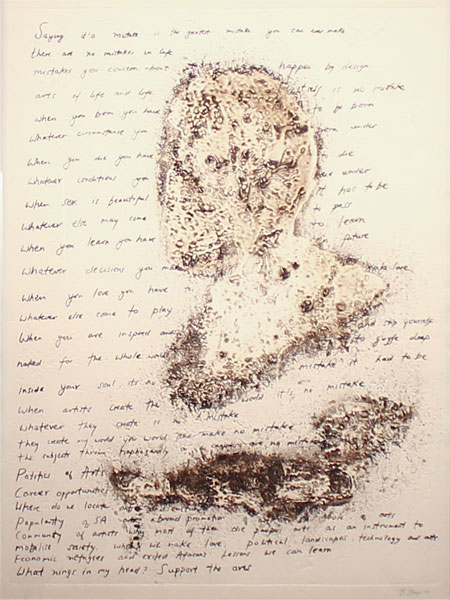 Saying it's a mistake is the greatest mistake you can ever make
there are no mistakes in life
mistakes you concern about happen by design
arts of life and life itself is no mistake
when you born you have to be born
whatever circumstance you born under
When you die you have to die
whatever conditions you are under
When sex is beautiful it has to be
Whatever else may come to pass
When you learn you have to learn
Whatever decisions you make future
When you love you have to love
Whatever else come to play
When you are inspired and and strip yourself
naked for the whole world to giggle deep
Inside your soul its no mistake it had to be
When artists create the world it's no mistake
Whatever they create is no mistake
they create my world you make no mistake
the subjects are no mistake
Politics of Arts
Career opportunities
Where do we locate role of arts
Popularity of SA abroad promotion
Community of artists most of them die paper arts as an instrument to
mobilise society. when we make love, political landscapes, technology and arts
Economic refugees and exiled Africans Lessons we can learn
What rings in my head? Support the arts